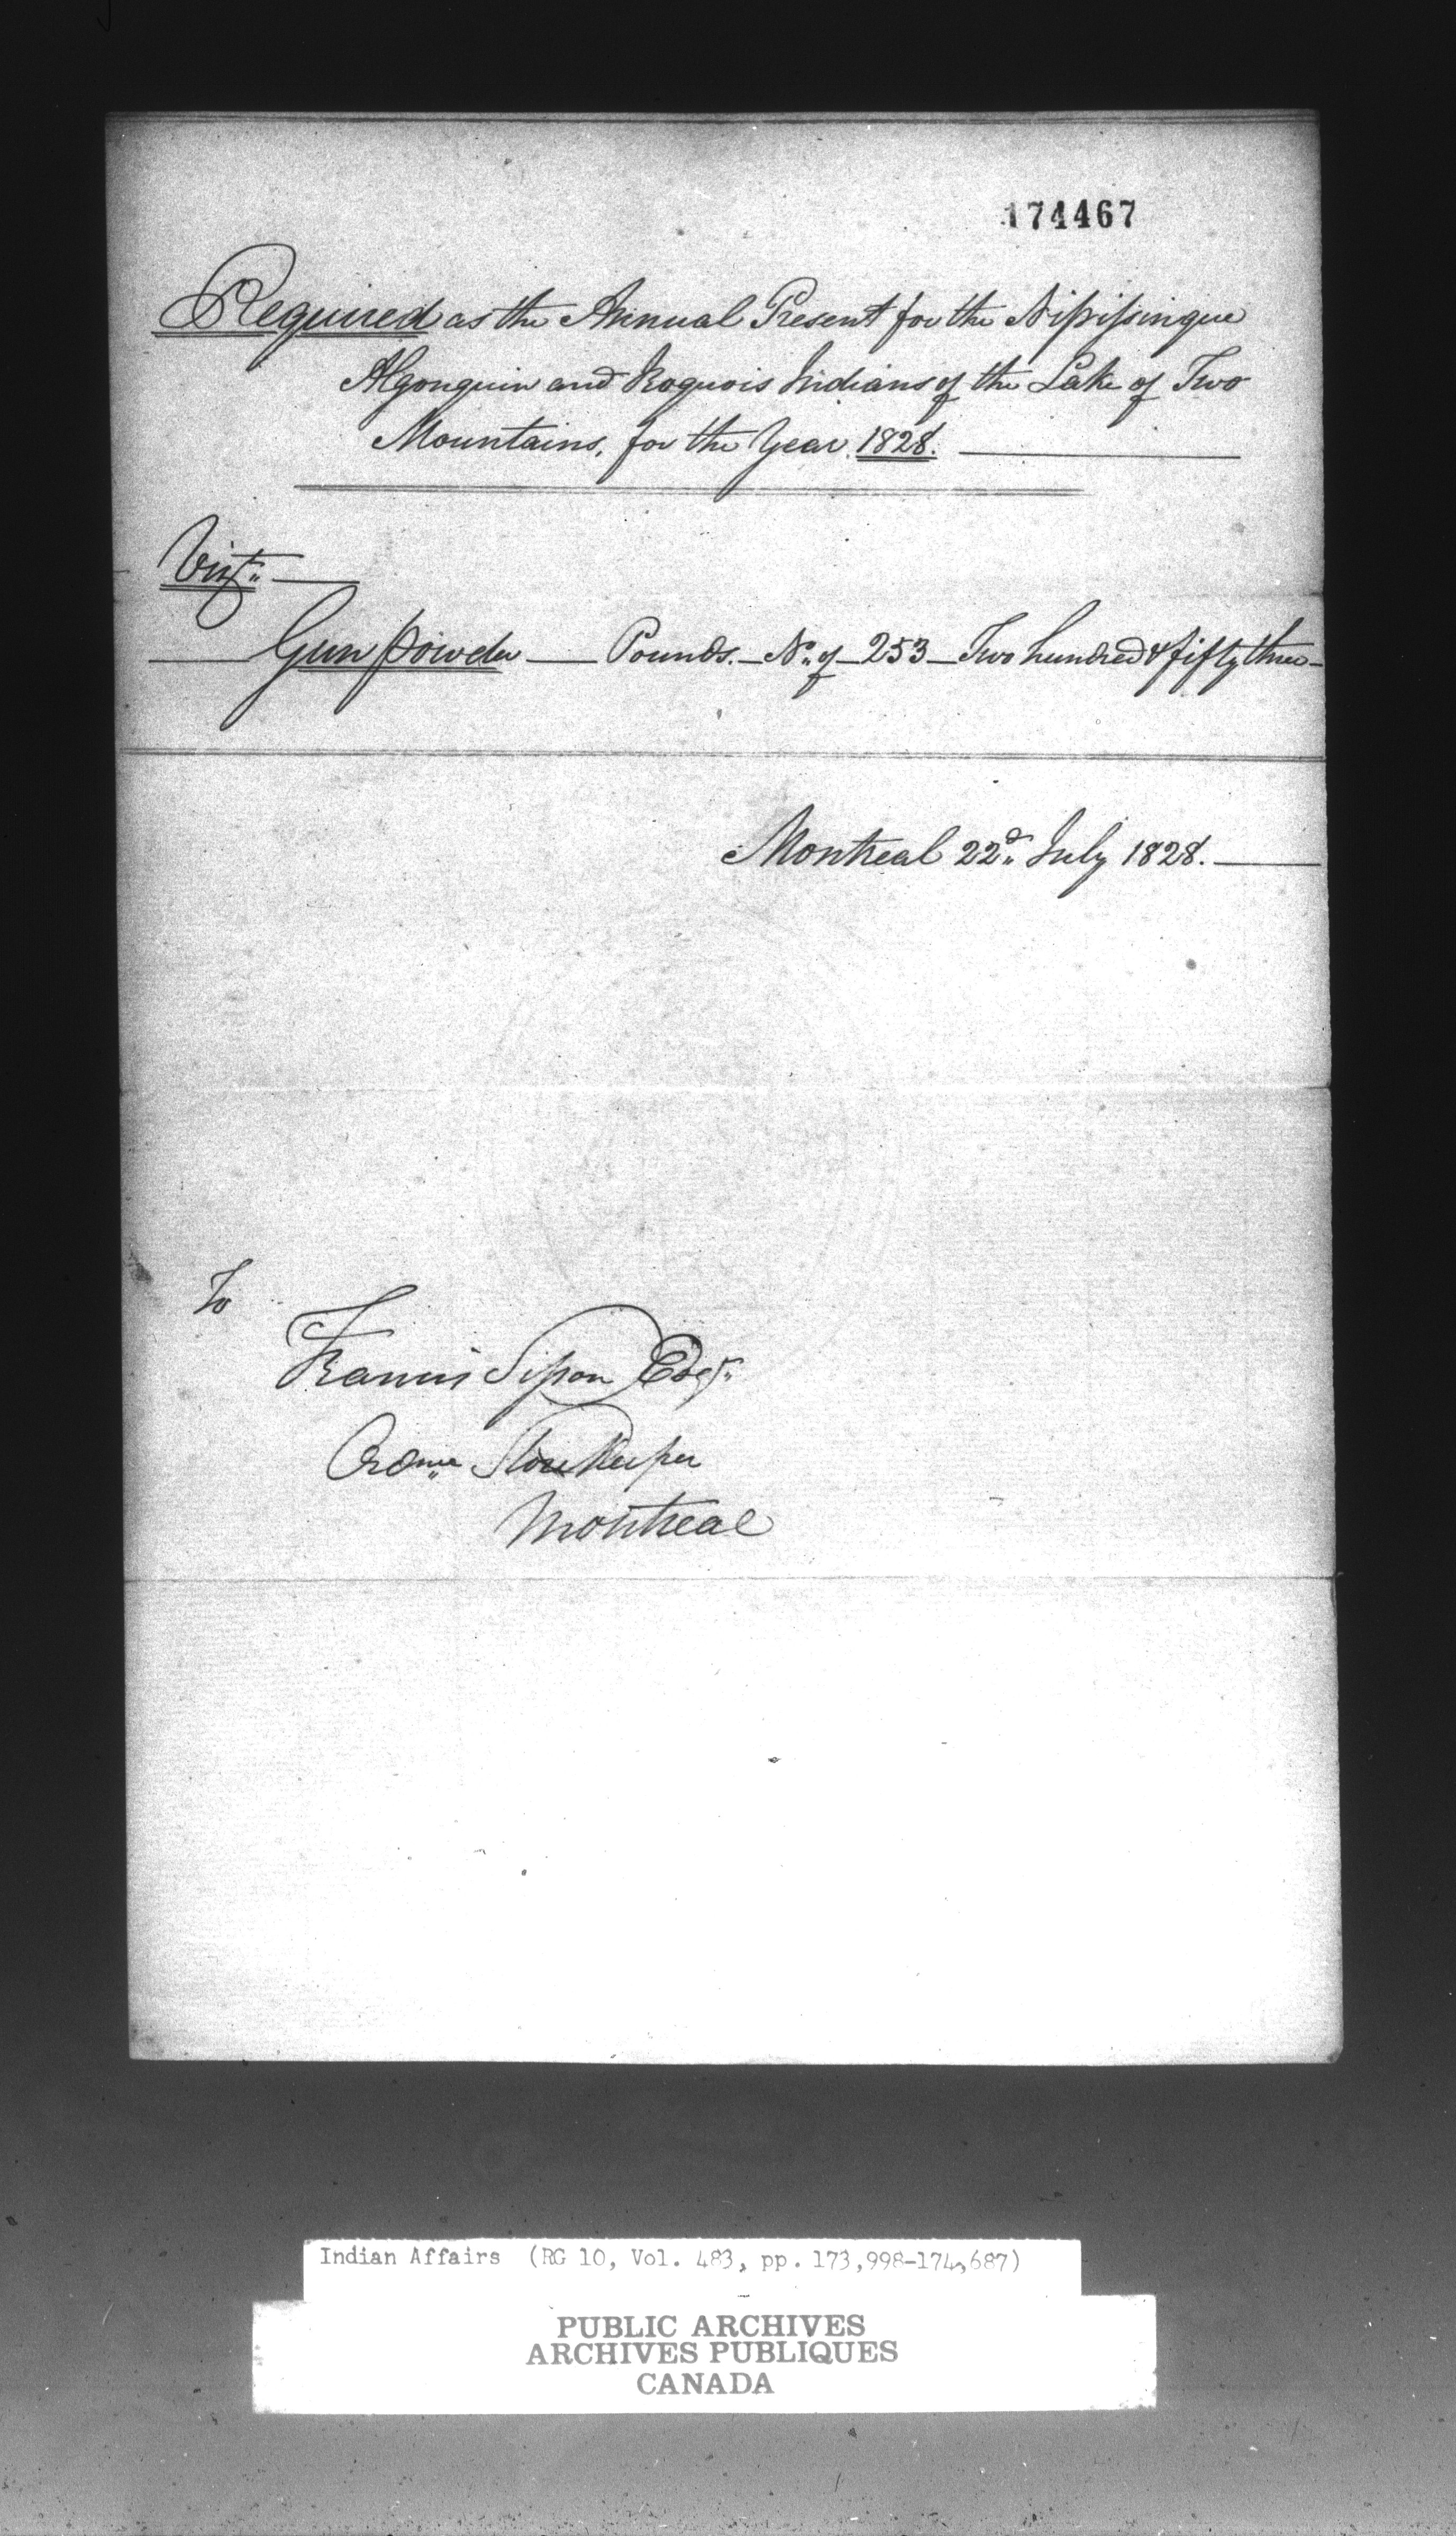 174467
Required as the Annual Present for the Nipissingue
Algonquin and Iroquois Indians of the Lake of Two
Mountains, for the Year 1828.
Vizt.
Gun powder Pounds. No. of 253 Two hundred & fifty three
Montreal 22d. July 1828.
To
Francis Sisson Esqr.
Ordnce Storekeeper
Montreal
Indian Affairs (RG 10, Vol. 483, pp. 173,998-174,687)
PUBLIC ARCHIVES
ARCHIVES PUBLIQUES
CANADA